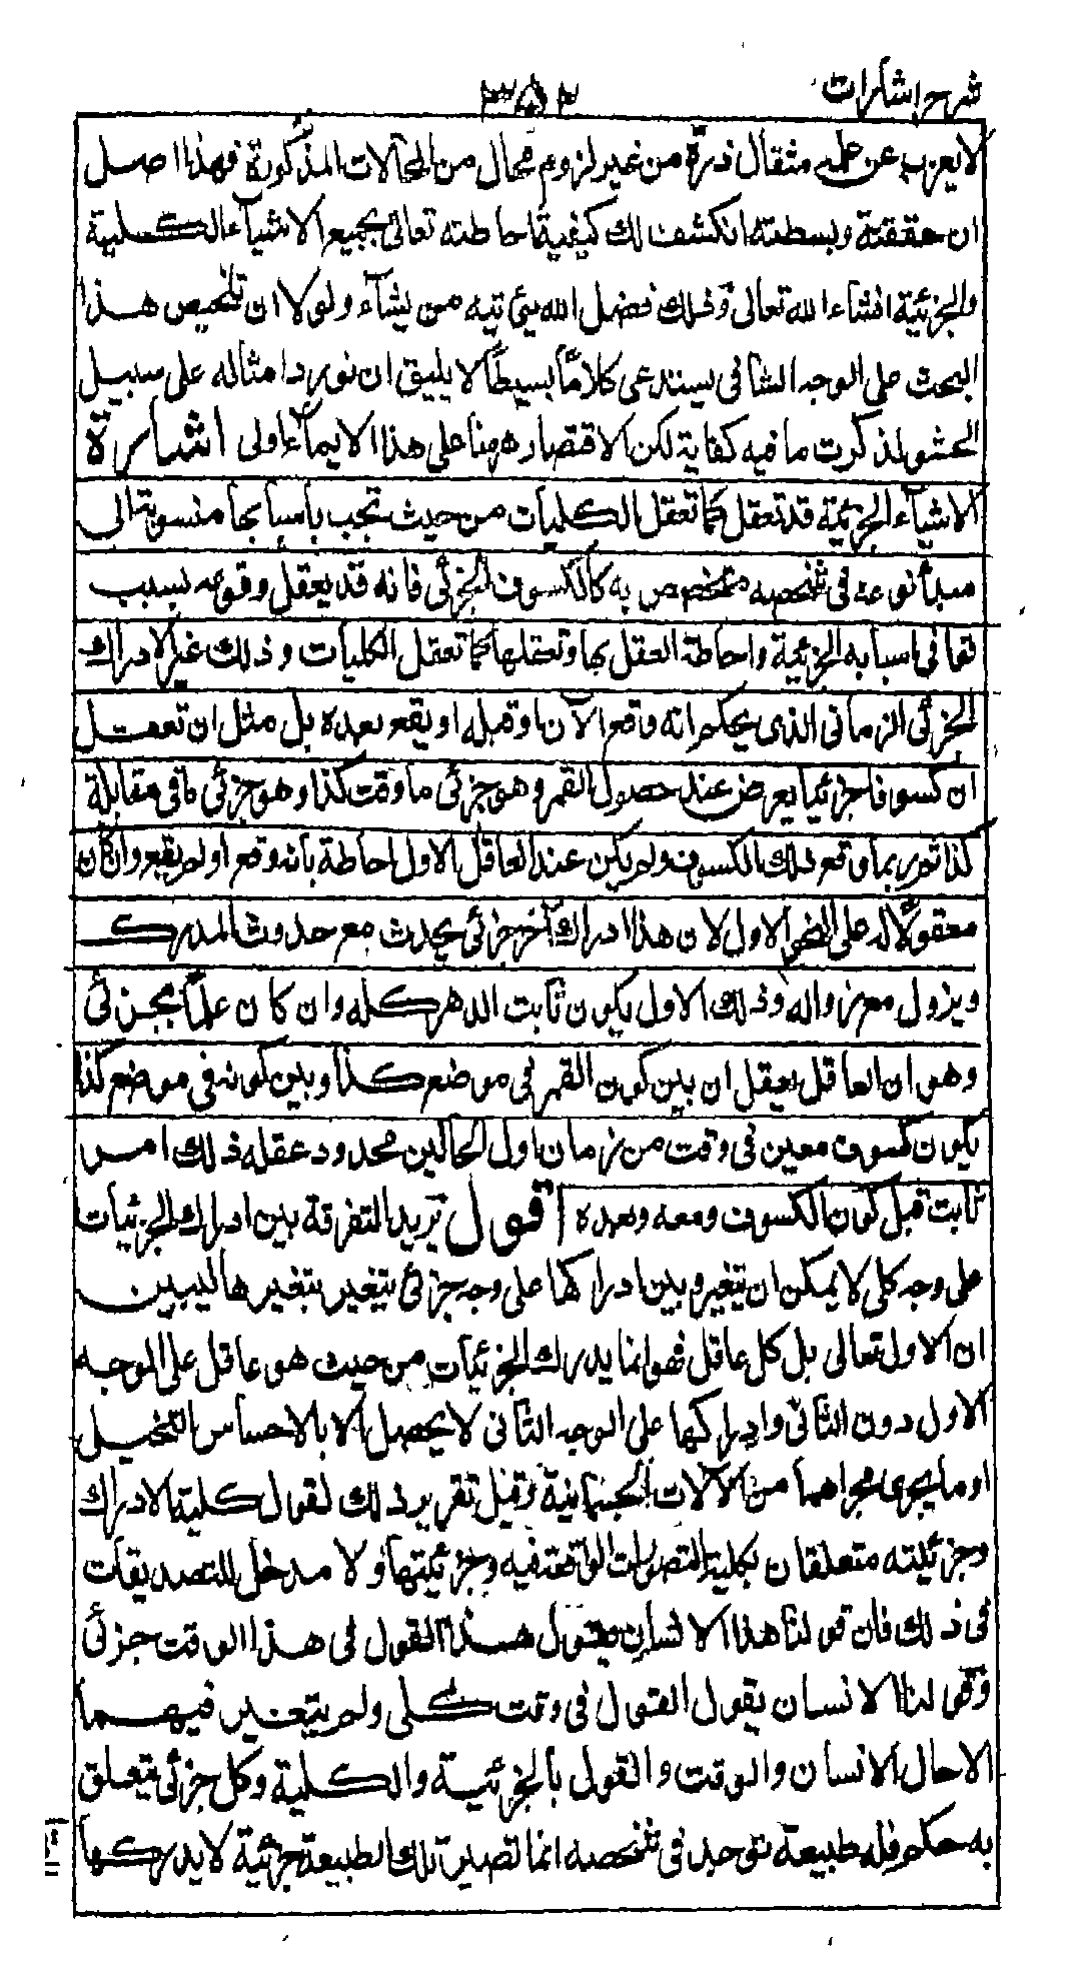 شرح اشارات
۳۵۲
لا يعزب عن علمه مثقال ذرة من غير لزوم محال من المحالات المذكورة فهذا اصل
ان حققته وبسطته انكشف لك كيفية احاطته تعالى بجميع الاشيآء الكلية
والجزئية انشاء الله تعالى وذلك فضل الله يؤتيه من يشآء ولولا ان تلخيص هذا
البحث على الوجه الشافى يستدعى كلامًا بسيطًا لا يليق ان نورد امثاله على سبيل
الحشو لذكرت ما فيه كفاية لكن الاقتصار ههنا على هذا الايمآء اولى اشارة
الاشيآء الجزئية قد تعقل كما تعقل الكليات من حيث تجب باسبابها منسوبة الى
مبدأ نوعه فى شخصه متخصص به كالكسوف الجزئى فانه قد يعقل وقوعه بسبب
توافى اسبابه الجزئية واحاطة العقل بها وتعقلها كما تعقل الكليات وذلك غير الادراك
الجزئى الزمانى الذى يحكم انه وقع الآن او قبله او يقع بعده بل مثل ان تعقل
ان كسوفا جزئيا يعرض عند حصول القمر وهو جزئى ما وقت كذا وهو جزئى ما فى مقابلة
كذا ثم ربما وقع ذلك الكسوف ولم يكن عند العاقل الاول احاطة بانه وقع اولم يقع وان كان
معقولًا له على النحو الاول لان هذا ادراك آخر جزئى يحدث مع حدوث المدرك
ويزول مع زواله وذلك الاول يكون ثابت الدهر كله وان كان علمًا بجزئى
وهو ان العاقل يعقل ان بين كون القمر فى موضع كذا وبين كونه فى موضع كذا
يكون كسوف معين فى وقت من زمان اول الحالين محدود عقله ذلك امر
ثابت قبل كون الكسوف ومعه وبعده اقول يريد التفرقة بين ادراك الجزئيات
على وجه كلى لا يمكن ان يتغير وبين ادراكها على وجه جزئى يتغير بتغيرها ليبين
ان الاول تعالى بل كل عاقل فهو انما يدرك الجزئيات من حيث هو عاقل على الوجه
الاول دون الثانى وادراكها على الوجه الثانى لا يحصل الا بالاحساس التخيل
او ما يجرى مجراهما من الآلات الجسمانية وقبل تقرير ذلك لقول كلية الادراك
وجزئيته متعلقان بكلية التصورات الواقعة فيه وجزئيتها ولا مدخل للتصديقات
فى ذلك فان قولنا هذا الانسان يقول هذا القول فى هذا الوقت جزئى
وقولنا الانسان يقول القول فى وقت كلى ولم يتغير فيهما
الاحال الانسان والوقت والقول بالجزئية والكلية وكل جزئى يتعلق
به حكم فله طبيعة توجد فى شخصه انما تصير تلك الطبيعة جزئية لا يدركها